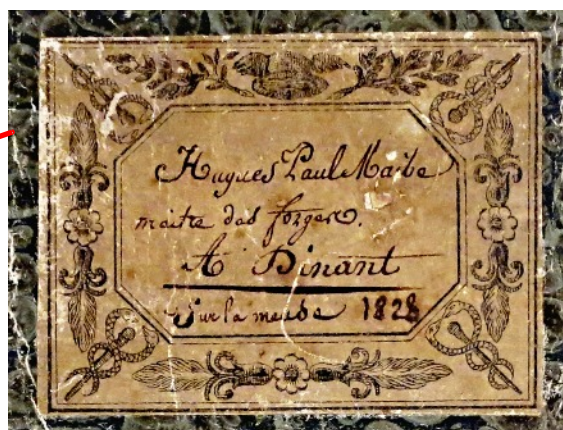 Hugues Paul Maibe
maitre des forges.
A Dinant
Sur la meuse 1828